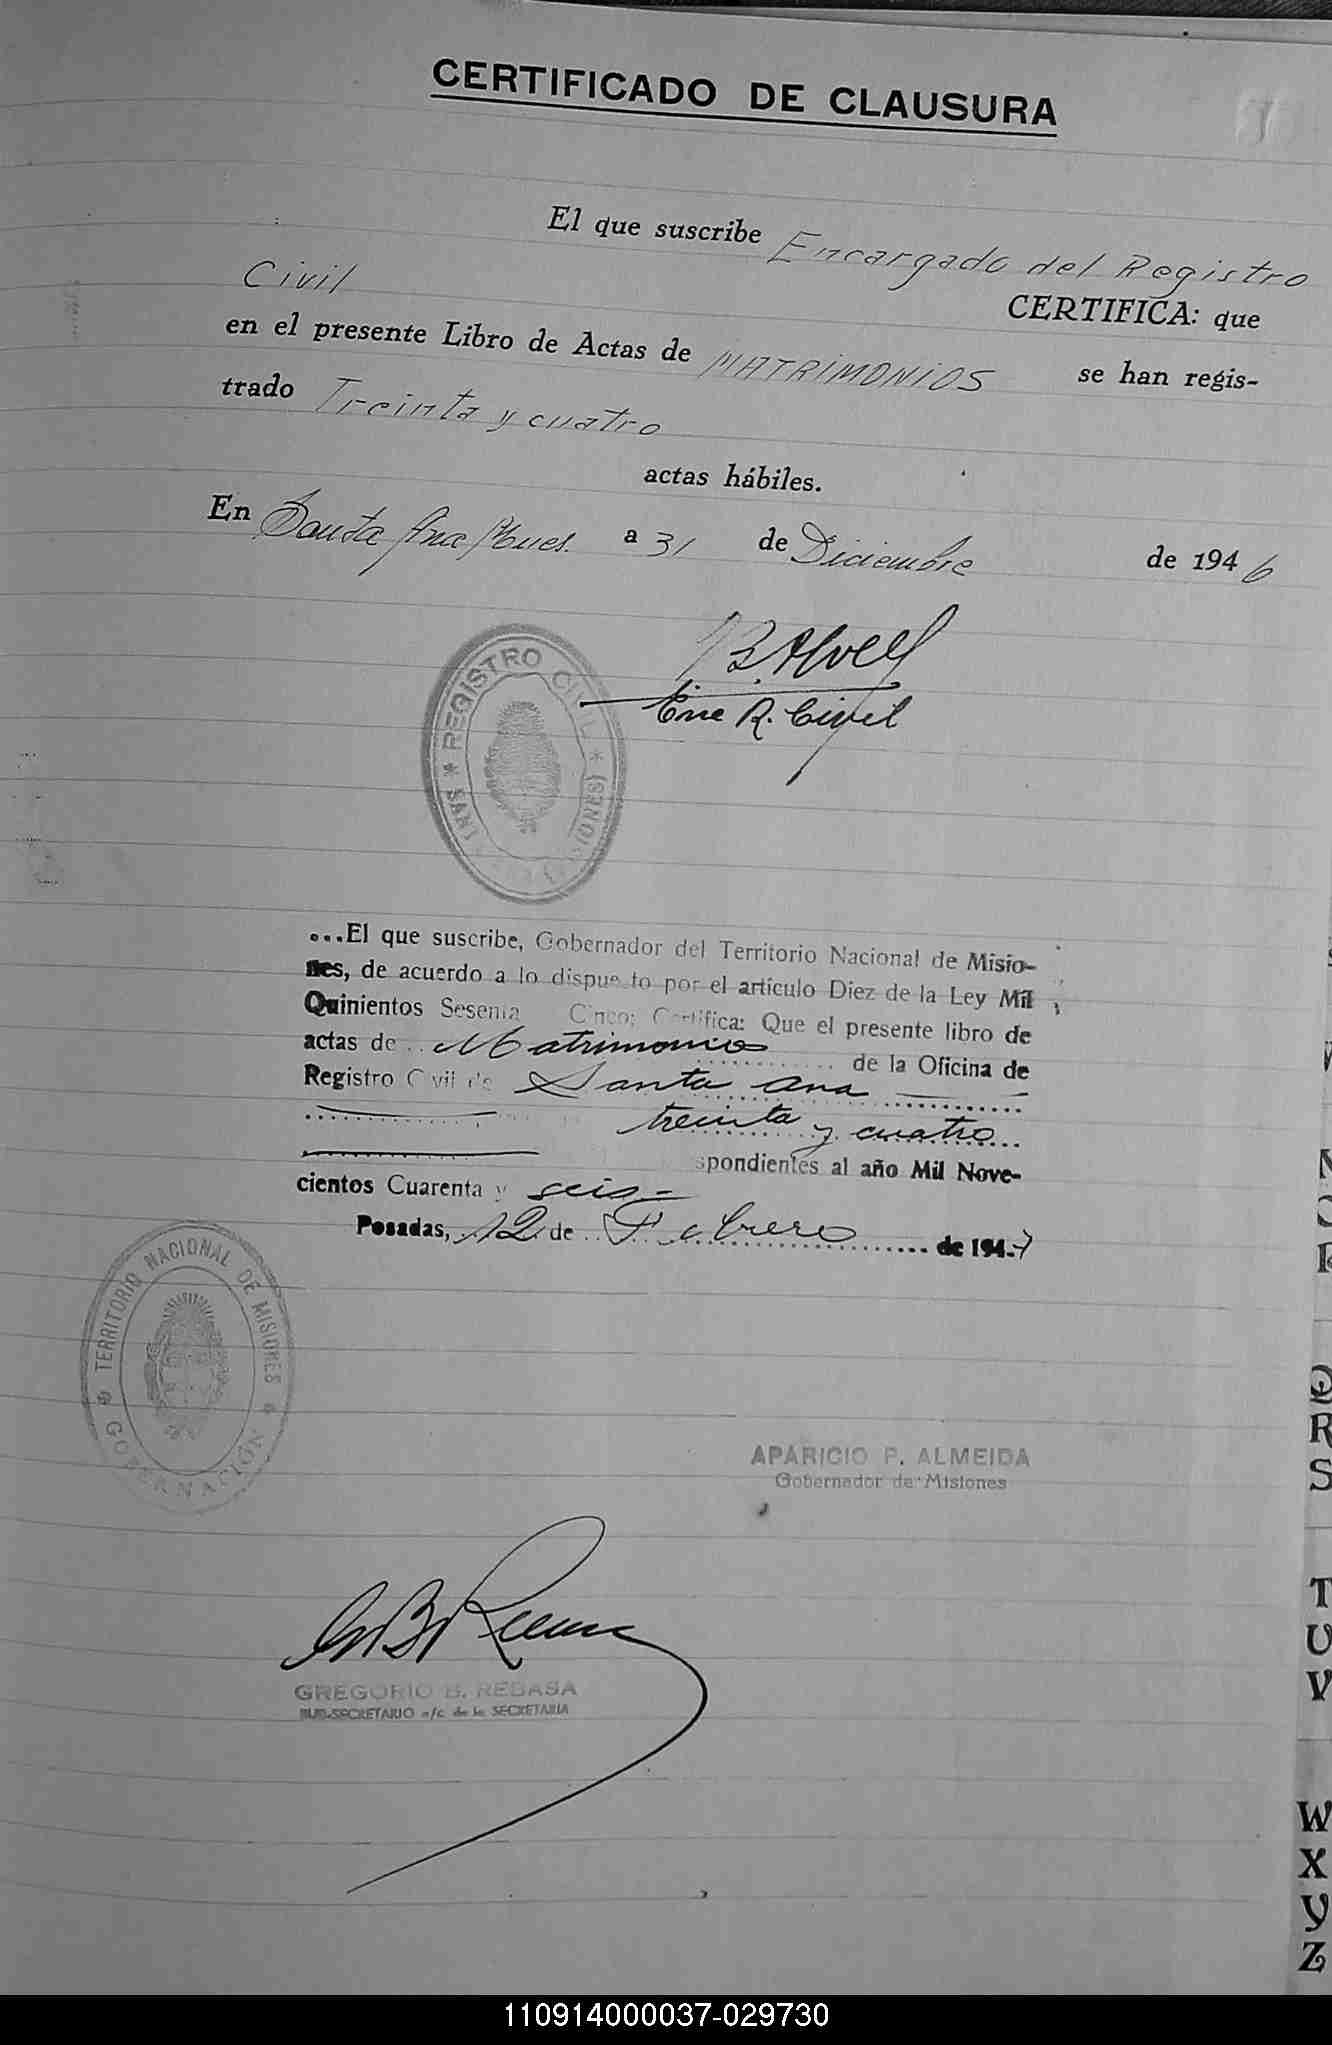 CERTIFICADO DE CLAUSURA
El que suscribe Encargado del Registro
Civil CERTIFICA: que
en el presente Libro de Actas de MATRIMONIOS se han regis-
trado Treinta y cuatro
actas hábiles.
En Santa Ana Mnes. a 31 de Diciembre de 1946
R. Civil
REGISTRO CIVIL
...El que suscribe, Gobernador del Territorio Nacional de Misio-
nes, de acuerdo a lo dispue to por el artículo Diez de la Ley Mil
Quinientos Sesenta Cinco; Certifica: Que el presente libro de
actas de Matrimonios de la Oficina de
Registro Civil de Santa Ana
treinta y cuatro
spondientes al año Mil Nove-
cientos Cuarenta y seis
Posadas, 12 de Febrero de 1947
TERRITORIO NACIONAL DE MISIONES
GOBERNACIÓN
APARICIO P. ALMEIDA
Gobernador de Misiones
GREGORIO B. REBASA
SUB-SECRETARIO a/c de la SECRETARIA
Q
R
S
T
U
V
W
X
Y
Z
110914000037-029730